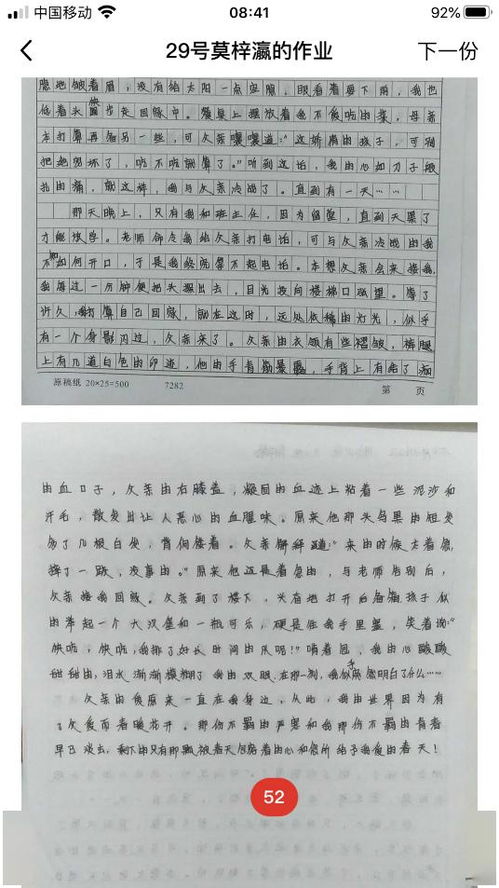 中国移动 08:41 92%
29号莫梓瀛的作业 下一份
着眉，没有给太阳一点空隙，眼看着要下雨，我也
低着头 回
本打算再 另一些，可父亲嚷嚷道：“这娇 的孩子，可别
把她 坏了，吃不吃就算了。”听到这话，我的心如刀子般
的痛，就这样，我与父亲冷战了。直到有一天……
那天晚上，只有我和班主任，因为 ，直到天黑了
才能放学。老师命令我给父亲打电话，可与父亲冷战的我
不知如何开口，于是我终究拿不起电话。本想父亲会来接我，
我每过一 钟便把头探出去，目光投向楼梯口 望。等了
许久，我打算自己回 ，就在这时，远处依稀的灯光，似乎
有一个身影闪过，父亲来了。父亲的衣领有些褶皱，裤腿
上有几道白色的印迹，他的手青筋暴露，手背上有结了痂
原稿纸 20×25=500 7282 第 页
的血口子，父亲的右膝盖，凝固的血迹上粘着一些泥沙和
，散发出让人恶心的血腥味。原来他那头乌黑的短发
多了几根白发，背佝偻着。父亲 道：“来的时候太着急，
摔了一跤，没事的。”原来他还是着急的，与老师告别后，
父亲 我回 。父亲到了楼下， 地打开后备箱孩子似
的举起一个大汉堡和一瓶可乐，硬是往我手里塞，笑着说：“
快吃，快吃，我排了好长时间的队呢！”啃着 ，我的心酸酸
甜甜的，泪水渐渐模糊了我的双眼。在那一刻，我似乎忽然明白了什么……
父亲的爱原来一直在我身边，从此，我的世界因为有
了父爱而春暖花开。那份不羁的严 和我那份不羁的青春
早已淡去，剩下的只有那飘 着天 的心和您所给予我爱的春天！
52